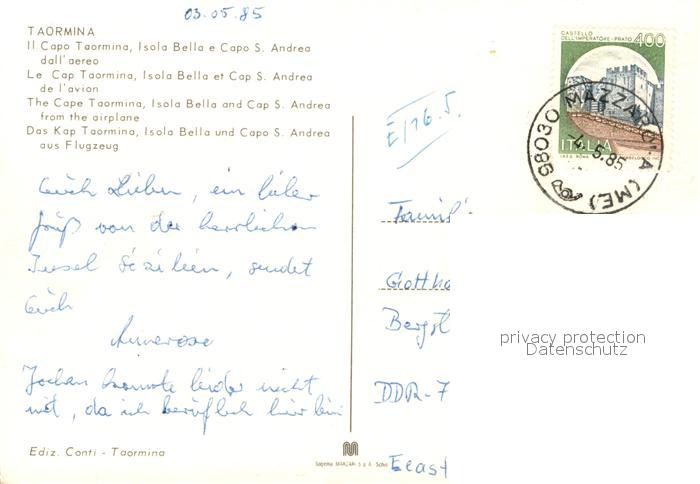 03.05.85
TAORMINA
Il Capo Taormina, Isola Bella e Capo S. Andrea
dall'aereo
Le Cap Taormina, Isola Bella et Cap S. Andrea
de l'avion
The Cape Taormina, Isola Bella and Cap S. Andrea
from the airplane
Das Kap Taormina, Isola Bella und Capo S. Andrea
aus Flugzeug
Euch Lieben, ein lieber
Gruß von der herrlichen
Insel Sizilien, sendet
Euch
Annerose
Jochen konnte leider nicht
mit, da ich beruflich hier bin
Ediz. Conti - Taormina
CASTELLO
DELL'IMPERATORE - PRATO 400
ITALIA
98030 MAZZARO' (ME)
4.5.85
E/16.5.
Famil
Gottho
Bergst
DDR-7
privacy protection
Datenschutz